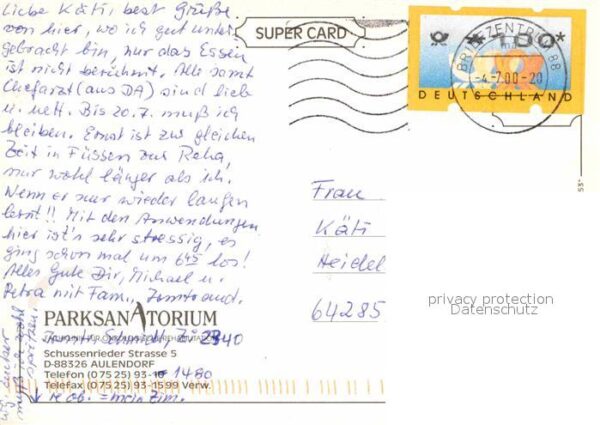 Liebe Käti, best Grüße
von hier, wo ich gut unter-
gebracht bin, nur das Essen
ist nicht berühmt. Alle samt
Chefarzt (aus DA) sind lieb
u. nett. Bis 20.7. muß ich
bleiben. Ernst ist zur gleichen
Zeit in Füssen zur Reha,
nur wohl länger als ich.
Wenn er nur wieder laufen
lernt!! Mit den Anwendungen
hier ist's sehr stressig, es
ging schon mal um 645 los!
Alles Gute Dir, Michael u.
Petra mit Fam.,
wg. Zucker
muß ich wohl
spritzen.
SUPER CARD
*1,00*
BRIEFZENTRUM 88
-4.-7.00-20
DEUTSCHLAND
Frau
Käti
Heidel
64285
privacy protection
Datenschutz
PARKSANATORIUM
Schmidt, Zi 2340
Schussenrieder Strasse 5
D-88326 AULENDORF
Telefon (0 75 25) 93-10 - 1480
Telefax (0 75 25) 93-15 99 Verw.
re ob. = mein Zim.